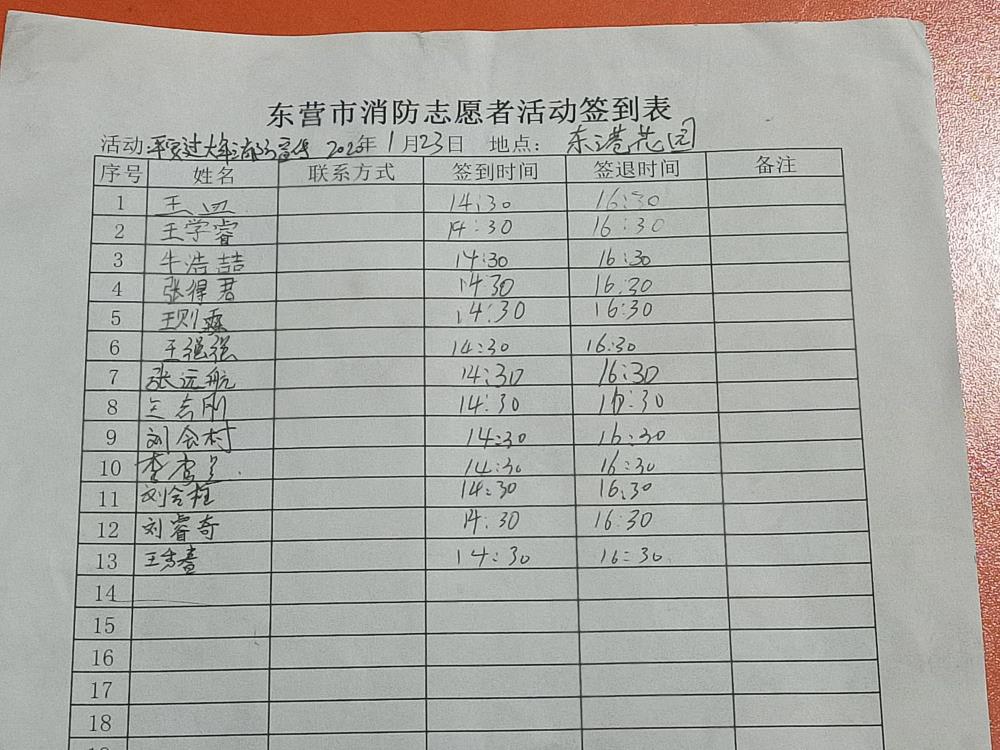 东营市消防志愿者活动签到表
活动 平安过大年 年 1月23日 地点: 东港花园
序号 姓名 联系方式 签到时间 签退时间 备注
1 王 14:30 16:30
2 王学睿 14:30 16:30
3 牛浩喆 14:30 16:30
4 张得君 14:30 16:30
5 王则霖 14:30 16:30
6 王强强 14:30 16:30
7 张远航 14:30 16:30
8 志刚 14:30 16:30
9 刘会村 14:30 16:30
10 李 14:30 16:30
11 刘会柱 14:30 16:30
12 刘睿奇 14:30 16:30
13 王秀春 14:30 16:30
14
15
16
17
18